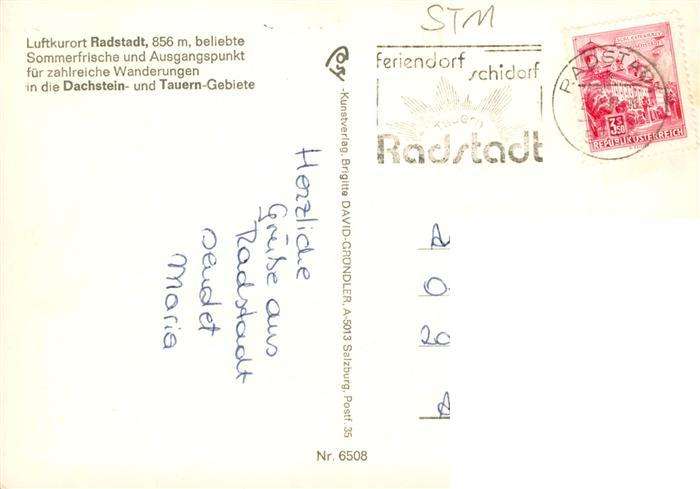 Luftkurort Radstadt, 856 m, beliebte
Sommerfrische und Ausgangspunkt
für zahlreiche Wanderungen
in die Dachstein- und Tauern-Gebiete
Herzliche
Grüße aus
Radstadt
sendet
Maria
-Kunstverlag, Brigitte DAVID-GRÜNDLER, A-5013 Salzburg, Postf. 35
Nr. 6508
STM
feriendorf
schidorf
Radstadt
RADSTADT
REPUBLIK ÖSTERREICH
A
O
20
A